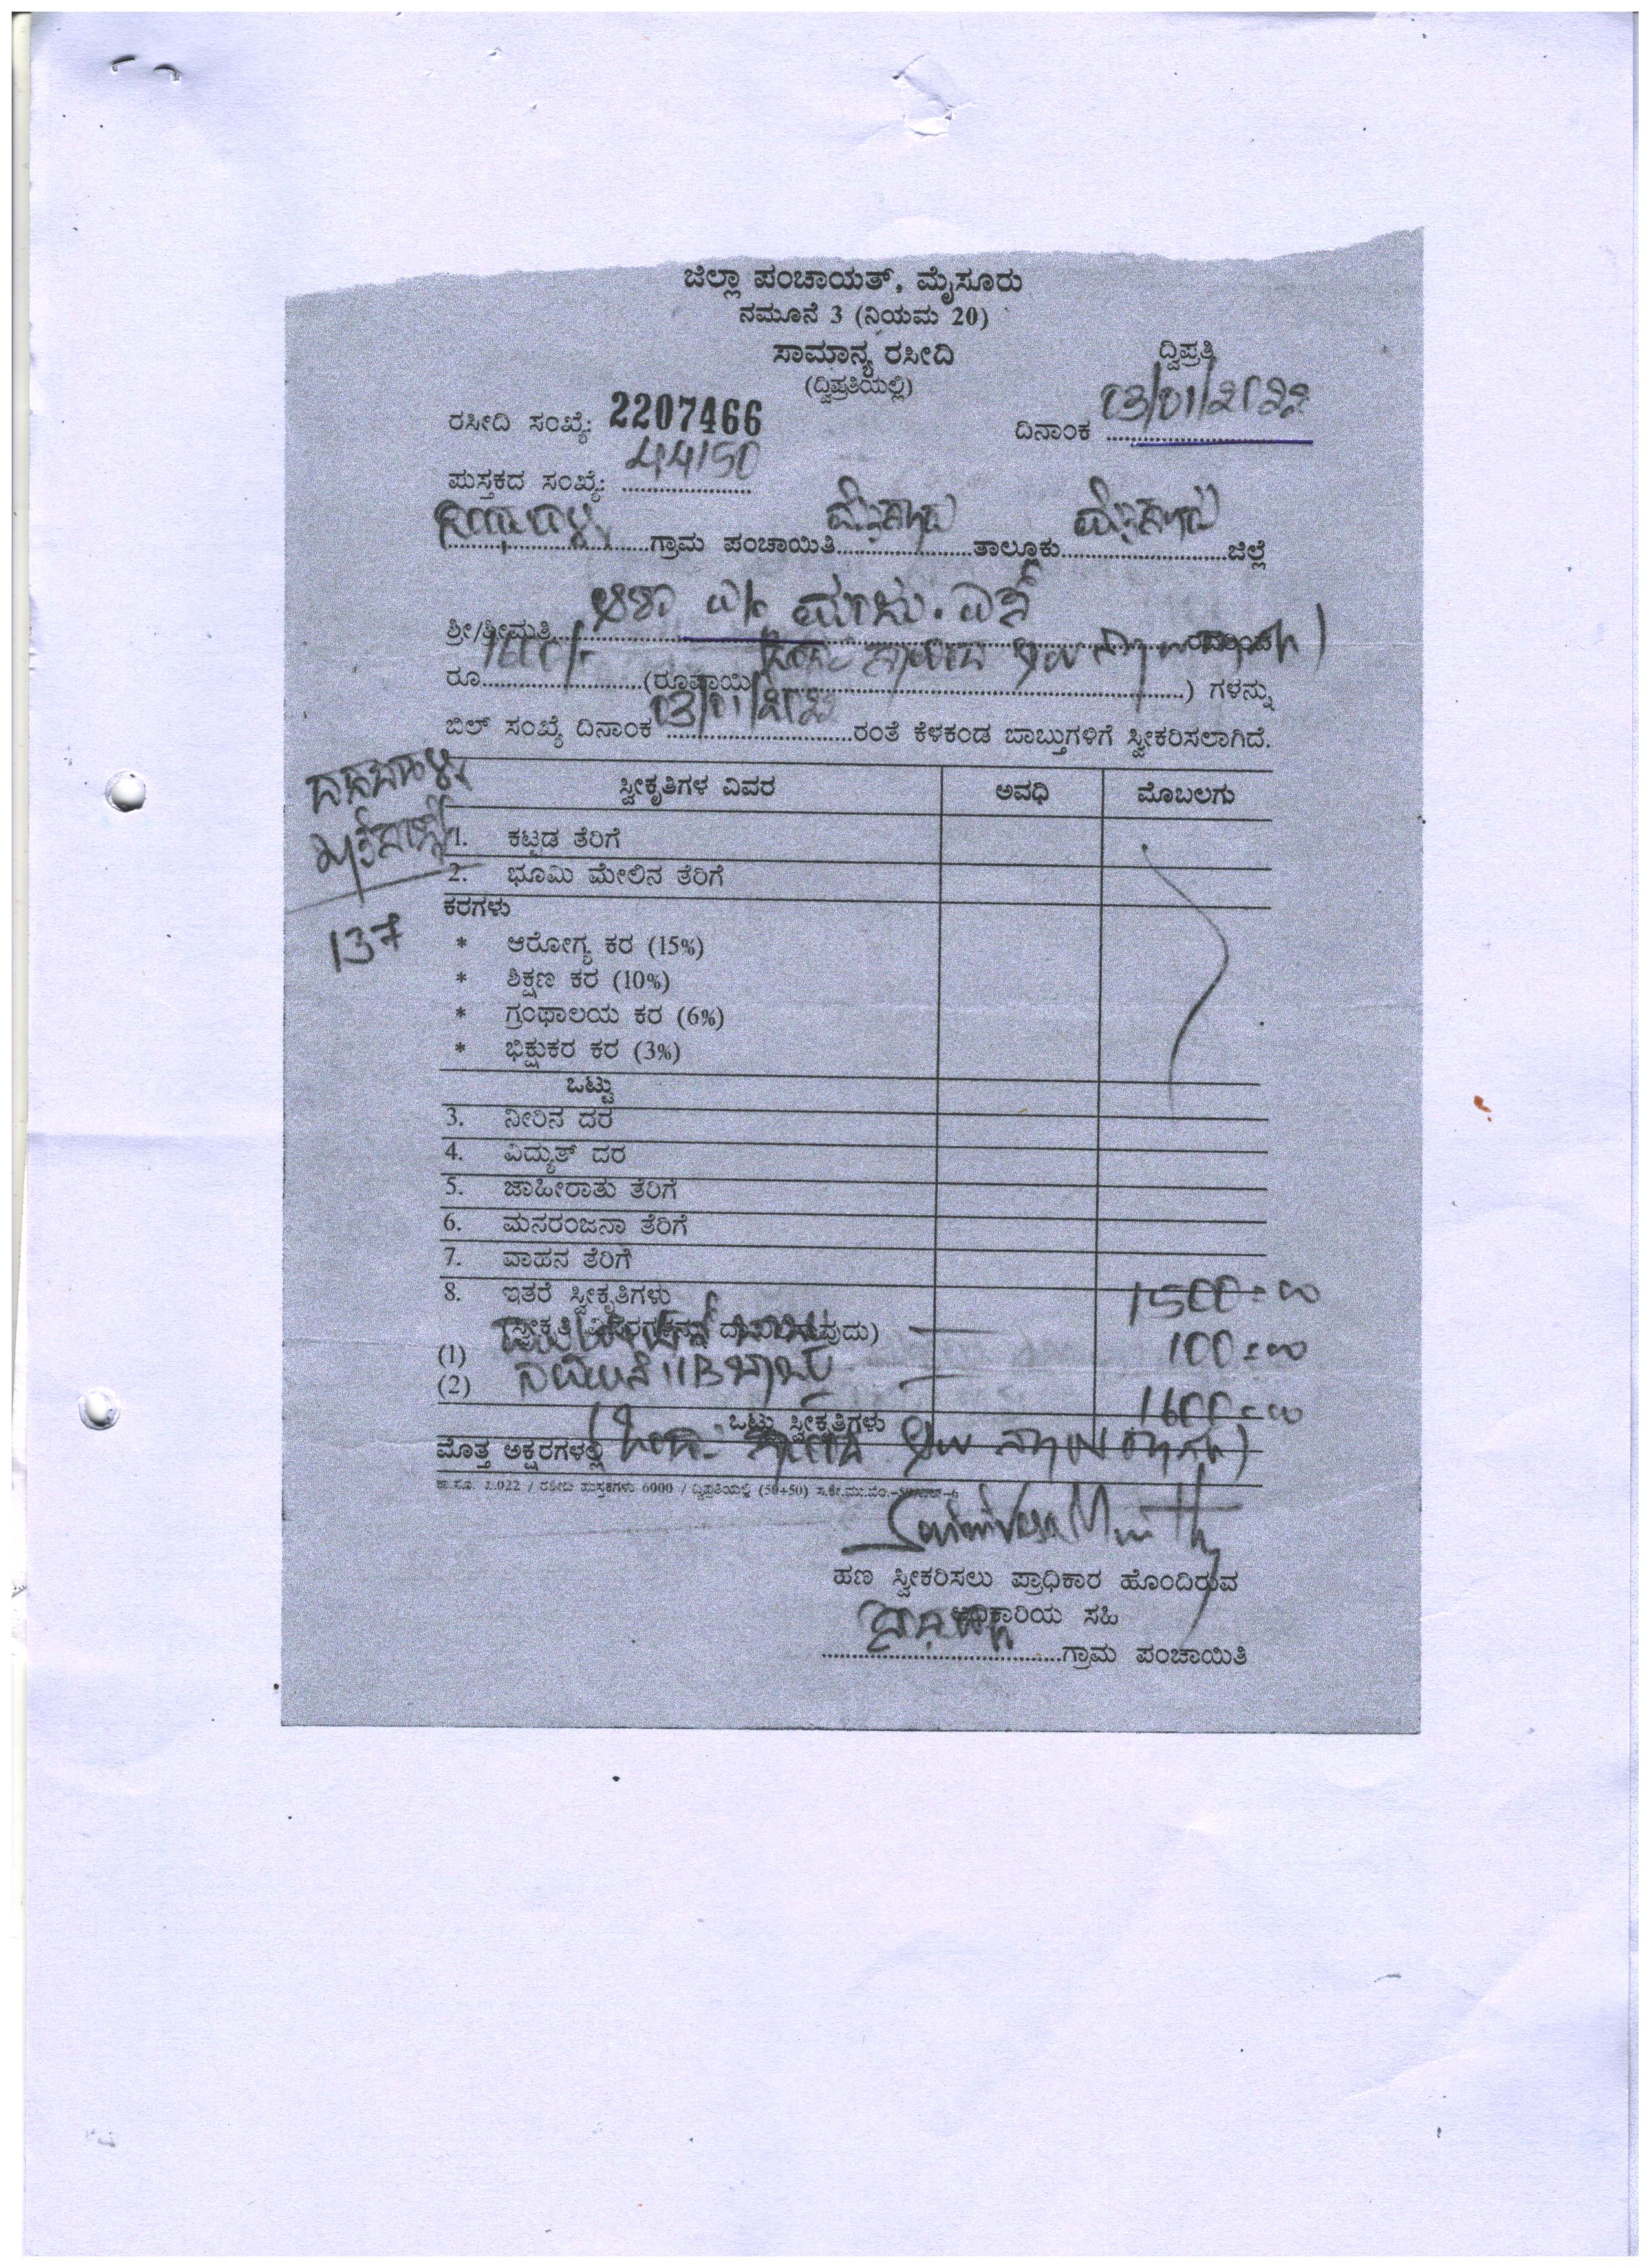 ಜಿಲ್ಲಾ ಪಂಚಾಯತ್, ಮೈಸೂರು
ನಮೂನೆ 3 (ನಿಯಮ 20)
ಸಾಮಾನ್ಯ ರಸೀದಿ
ದ್ವಿಪ್ರತಿ
(ದ್ವಿಪ್ರತಿಯಲ್ಲಿ)
ರಸೀದಿ ಸಂಖ್ಯೆ: 2207466
ದಿನಾಂಕ 03/01/2022
ಪುಸ್ತಕದ ಸಂಖ್ಯೆ: 44150
ಗ್ರಾಮ ಪಂಚಾಯಿತಿ ಮೈಸೂರು ತಾಲ್ಲೂಕು ಮೈಸೂರು ಜಿಲ್ಲೆ
ಶ್ರೀ/ಶ್ರೀಮತಿ ಆಶಾ ರವರಿಂದ
ರೂ 1600/- (ರೂಪಾಯಿ ಒಂದು ಸಾವಿರ ) ಗಳನ್ನು
ಬಿಲ್ ಸಂಖ್ಯೆ ದಿನಾಂಕ 03/01/2022 ರಂತೆ ಕೆಳಕಂಡ ಬಾಬ್ತುಗಳಿಗೆ ಸ್ವೀಕರಿಸಲಾಗಿದೆ.
137
ಸ್ವೀಕೃತಿಗಳ ವಿವರ ಅವಧಿ ಮೊಬಲಗು
1. ಕಟ್ಟಡ ತೆರಿಗೆ
2. ಭೂಮಿ ಮೇಲಿನ ತೆರಿಗೆ
ಕರಗಳು
* ಆರೋಗ್ಯ ಕರ (15%)
* ಶಿಕ್ಷಣ ಕರ (10%)
* ಗ್ರಂಥಾಲಯ ಕರ (6%)
* ಭಿಕ್ಷುಕರ ಕರ (3%)
ಒಟ್ಟು
3. ನೀರಿನ ದರ
4. ವಿದ್ಯುತ್ ದರ
5. ಜಾಹೀರಾತು ತೆರಿಗೆ
6. ಮನರಂಜನಾ ತೆರಿಗೆ
7. ವಾಹನ ತೆರಿಗೆ
8. ಇತರೆ ಸ್ವೀಕೃತಿಗಳು 1500=00
(1) 100=00
(2) ನಮೂನೆ 11B ಬಾಬ್ತು
ಒಟ್ಟು ಸ್ವೀಕೃತಿಗಳು 1600=00
ಮೊತ್ತ ಅಕ್ಷರಗಳಲ್ಲಿ (ಒಂದು ಸಾವಿರ )
ಹಣ ಸ್ವೀಕರಿಸಲು ಪ್ರಾಧಿಕಾರ ಹೊಂದಿರುವ
ಅಧಿಕಾರಿಯ ಸಹಿ
ಗ್ರಾಮ ಪಂಚಾಯಿತಿ